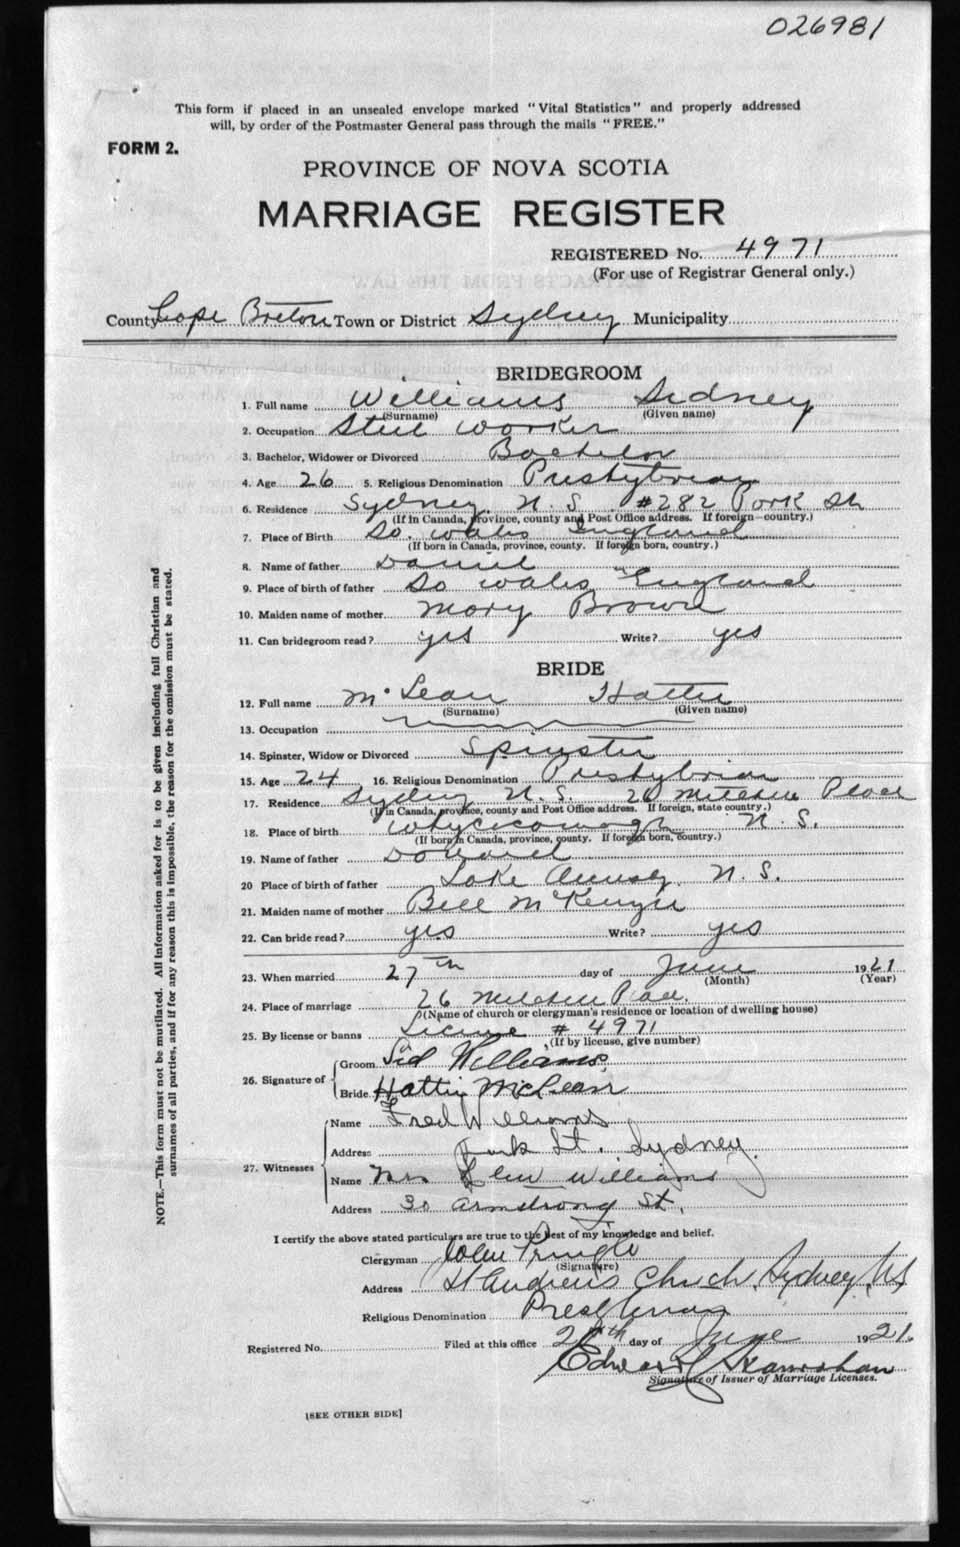 026981
This form if placed in an unsealed envelope marked "Vital Statistics" and properly addressed
will, by order of the Postmaster General pass through the mails "FREE."
FORM 2.
PROVINCE OF NOVA SCOTIA
MARRIAGE REGISTER
REGISTERED No. 4971
(For use of Registrar General only.)
County Cape Breton Town or District Sydney Municipality
BRIDEGROOM
1. Full name Williams Sidney
(Surname) (Given name)
2. Occupation Steel worker
3. Bachelor, Widower or Divorced Bachelor
4. Age 26 5. Religious Denomination Presbyterian
6. Residence Sydney N. S. #282 Park St
(If in Canada, province, county and Post Office address. If foreign—country.)
7. Place of Birth So. Wales England
(If born in Canada, province, county. If foreign born, country.)
8. Name of father Daniel
9. Place of birth of father So Wales England
10. Maiden name of mother Mary Brown
11. Can bridegroom read? yes Write? yes
BRIDE
12. Full name McLean Hattie
(Surname) (Given name)
13. Occupation
14. Spinster, Widow or Divorced Spinster
15. Age 24 16. Religious Denomination Presbyterian
17. Residence Sydney N. S. 26 Mitchell Place
(If in Canada, province, county and Post Office address. If foreign, state country.)
18. Place of birth Whycocomagh N. S.
(If born in Canada, province, county. If foreign born, country.)
19. Name of father Donald
20 Place of birth of father Lake Ainsley N. S.
21. Maiden name of mother Bell McKenzie
22. Can bride read? yes Write? yes
23. When married 27th day of June 1921
(Month) (Year)
24. Place of marriage 26 Mitchell Place
(Name of church or clergyman's residence or location of dwelling house)
25. By license or banns License # 4971
(If by license, give number)
26. Signature of Groom Sid Williams
Bride Hattie McLean
27. Witnesses Name Fred Williams
Address Park St. Sydney.
Name Mrs Williams
Address 30 Armstrong St.
I certify the above stated particulars are true to the best of my knowledge and belief.
Clergyman John Pringle
(Signature)
Address St Andrews Church, Sydney, N.S
Religious Denomination Presbyterian
Registered No. Filed at this office day of June 1921
Edward
Signature of Issuer of Marriage Licenses.
[SEE OTHER SIDE]
NOTE.—This form must not be mutilated. All information asked for is to be given including full Christian and
surnames of all parties, and if for any reason this is impossible, the reason for the omission must be stated.